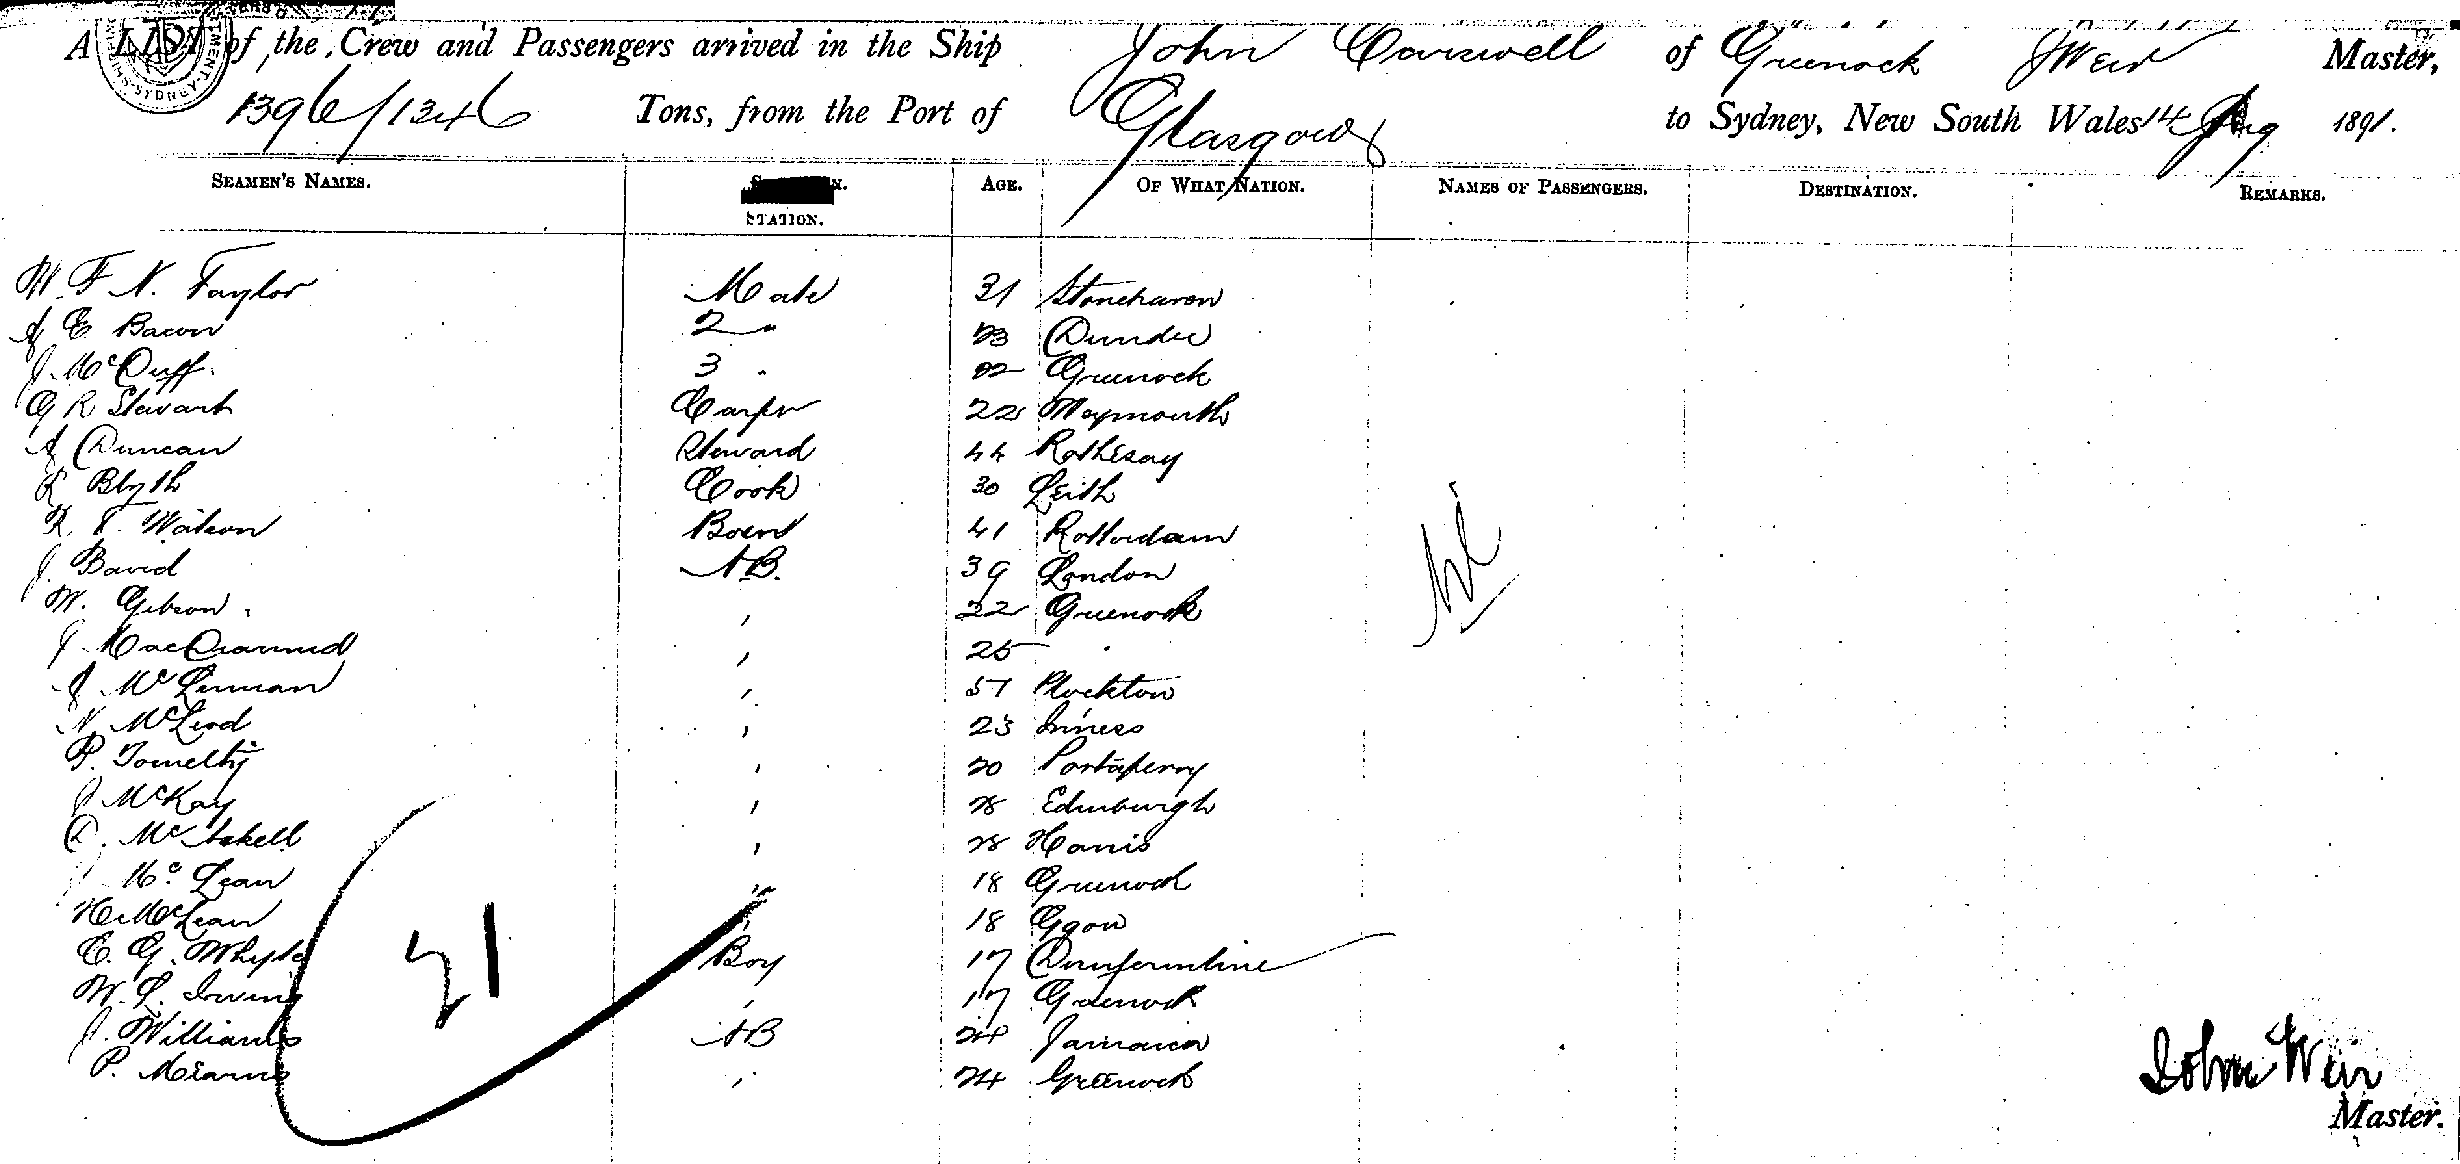 A LIST of the Crew and Passengers arrived in the Ship John Carswell of Greenock J Weir Master,
1396/1346 Tons, from the Port of Glasgow to Sydney, New South Wales 14 Aug 1891.
SEAMEN'S NAMES. STATION. AGE. OF WHAT NATION. NAMES OF PASSENGERS. DESTINATION. REMARKS.
W. F. N. Taylor Mate 31 Stonehaven
A E Bacon 2 " 23 Dundee
J. McDuff. 3 " 22 Greenock
G R Stewart Carpr 22 Weymouth
A Duncan Steward 44 Rothesay
R Blyth Cook 30 Leith
R. T. Watson Bosn 41 Rotterdam
J. David AB. 39 London
W. Gibson " 22 Greenock
J MacDiarmid " 25 "
J McLennan " 57 Plockton
N. McLeod " 23 Inness
P. Tomelty " 20 Portaferry
J McKay " 28 Edinburgh
D. McAskell " 28 Harris
J McLean " 18 Greenock
H. McLean " 18 Ggow
E. G. Whyte Boy 17 Dunfermline
W. L. Irving " 17 Greenock
J. Williams AB 24 Jamaica
P. Mearns " 24 Greenock
21
Nil
John Weir
Master.